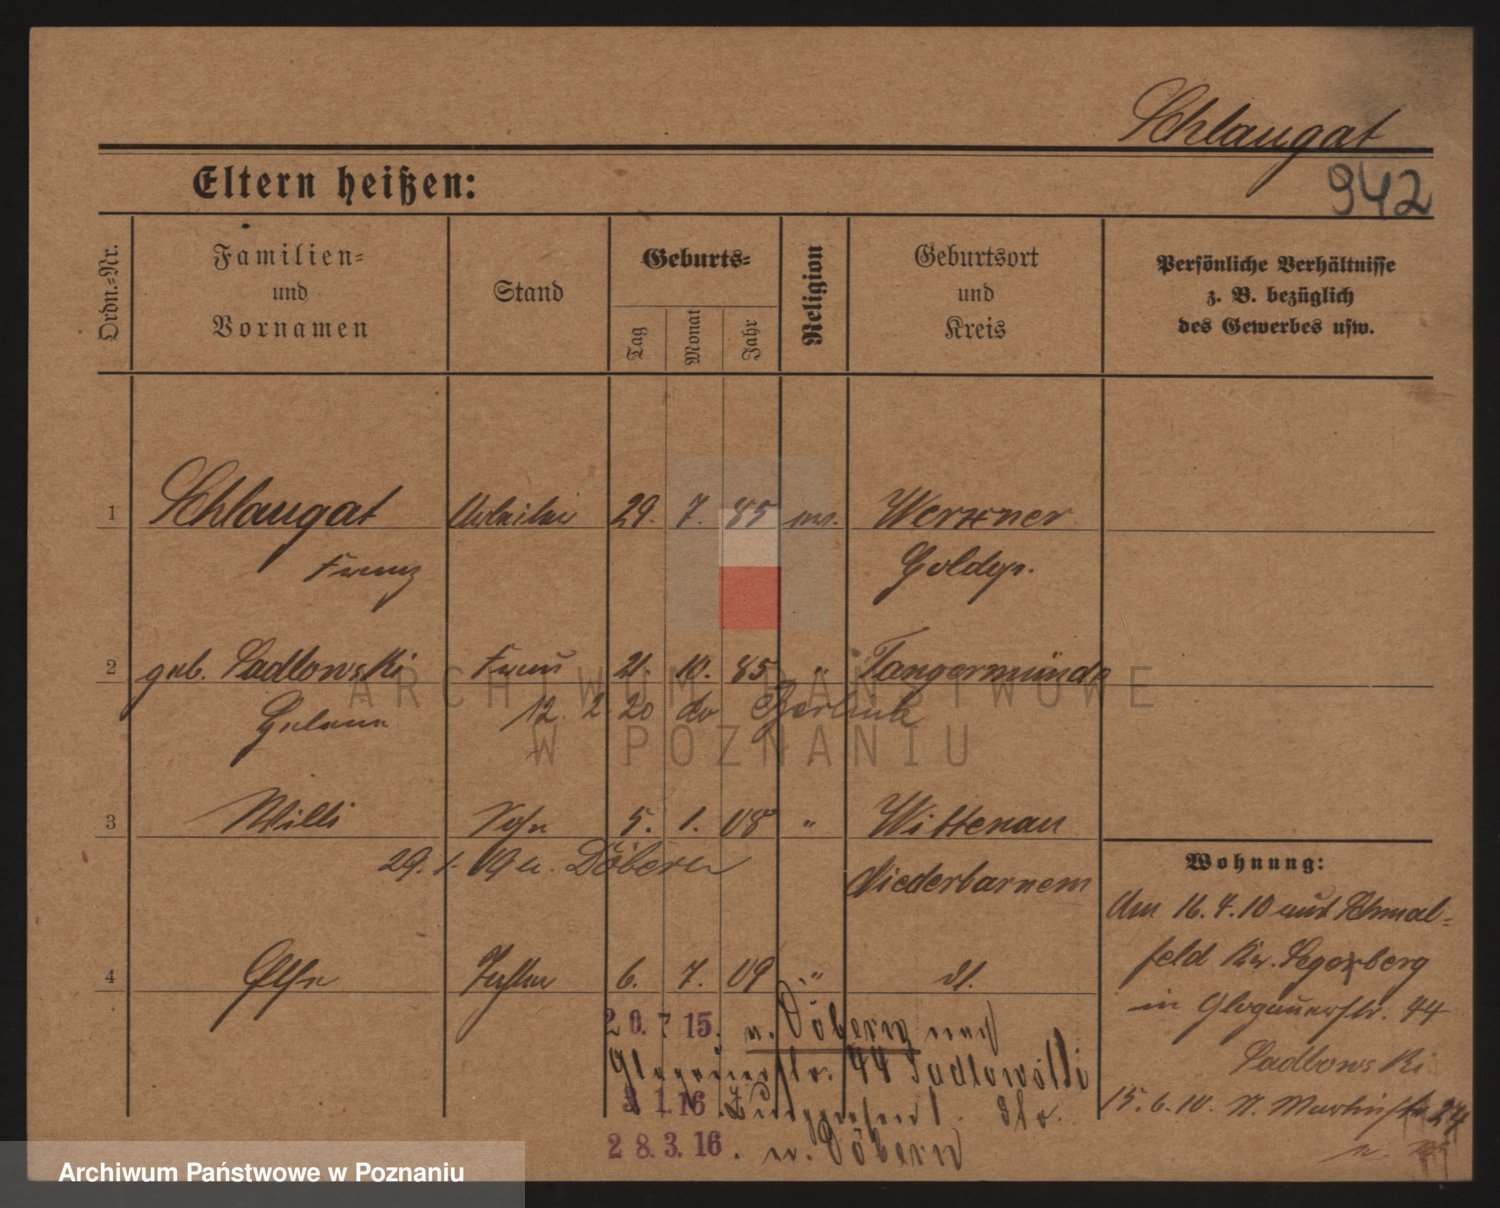 Schlaugat
942
Eltern heißen:
Ordn.-Nr.
Familien-
und
Vornamen
Stand
Geburts-
Tag
Monat
Jahr
Religion
Geburtsort
und
Kreis
Persönliche Verhältnisse
z. B. bezüglich
des Gewerbes usw.
1 Schlaugat Arbeiter 29. 7. 85 Werxner
Franz Goldap.
2 geb. Sadlowski Frau 21. 10. 85 " Tangermünde
Helene 12. 2. 20 do
3 Willi Sohn 5. 1. 08 " Wittenau
29. 1. 19 n. Döbern Niederbarnem
Wohnung:
Am 16. 4. 10 aus Schmal-
feld Kr. Segeberg
4 Else Tochter 6. 7. 09 " d.
in Glogauerstr. 44
20. 7 15. n. Döbern nach
Sadlowski
Glogauerstr. 44 Sadlowski
3 1. 16
15. 6. 10. St. Martinstr. 24
28. 3. 16. n. Döbern
ARCHIWUM PAŃSTWOWE
W POZNANIU
Archiwum Państwowe w Poznaniu